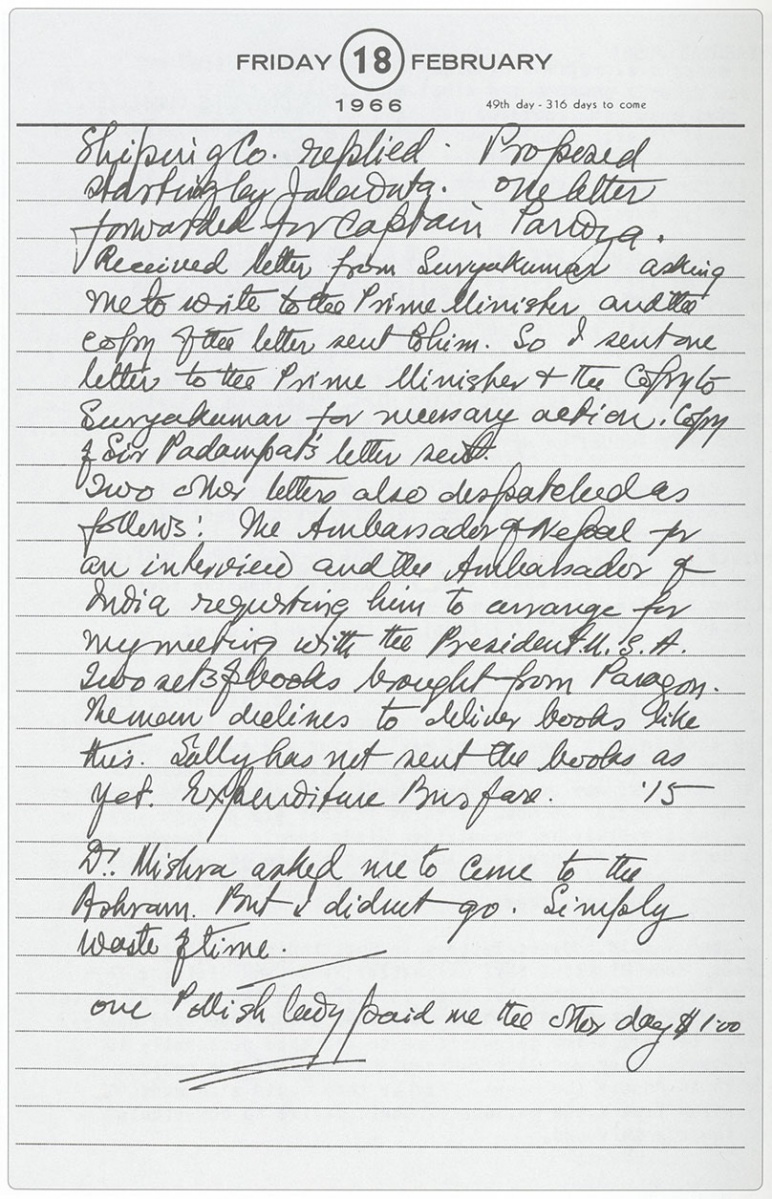 FRIDAY 18 FEBRUARY
1966 49th day - 316 days to come
Shiping Co. replied. Proposed
starting by Jaladuta. one letter
forwarded for Captain Pandya.
Received letter from Suryakumar asking
me to write to the Prime Minister and the
copy of the letter sent to him. So I sent one
letter to the Prime Minister & the Copy to
Suryakumar for necessary action. Copy
of Sir Padampat's letter sent.
Two other letters also despatched as
follows: The Ambassador of Nepal for
an interview and the Ambassador of
India requesting him to arrange for
my meeting with the President U.S.A.
Two sets of books brought from Paragon.
The man declines to deliver books like
this. Sally has not sent the books as
yet. Expenditure Bus fare. '15
Dr. Mishra asked me to come to the
Ashram. But I didnt go. Simply
waste of time.
one Pollish lady paid me the other day $1.00